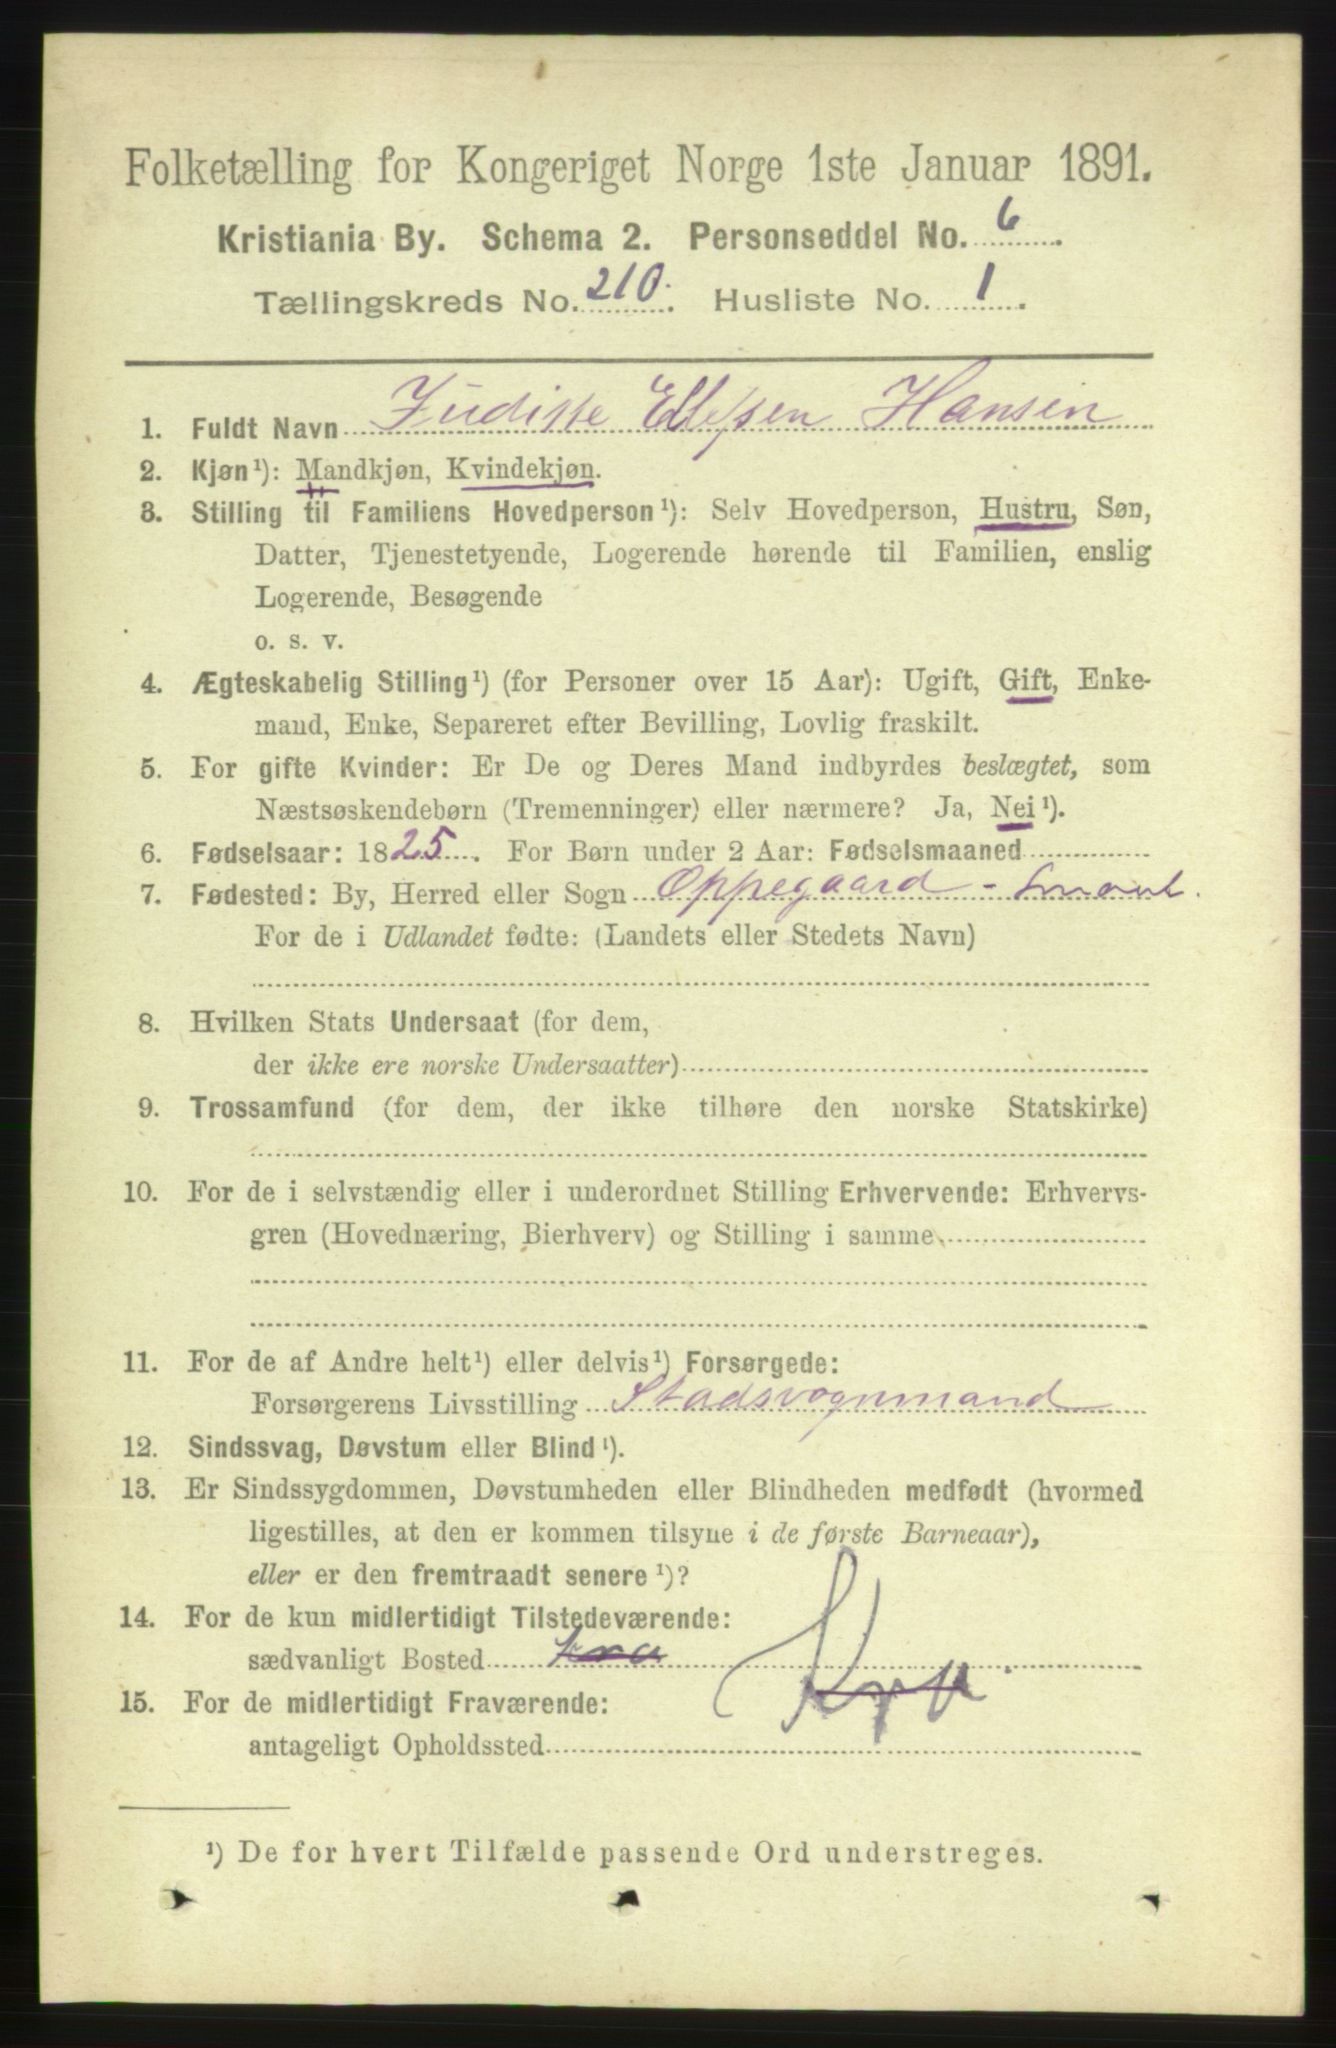 Folketælling for Kongeriget Norge 1ste Januar 1891.
Kristiania By. Schema 2. Personseddel No. 6.
Tællingskreds No. 210. Husliste No. 1.
1. Fuldt Navn Judisse Ellefsen Hansen
2. Kjøn¹): Mandkjøn, Kvindekjøn.
3. Stilling til Familiens Hovedperson¹): Selv Hovedperson, Hustru, Søn,
Datter, Tjenestetyende, Logerende hørende til Familien, enslig
Logerende, Besøgende
o. s. v.
4. Ægteskabelig Stilling¹) (for Personer over 15 Aar): Ugift, Gift, Enke-
mand, Enke, Separeret efter Bevilling, Lovlig fraskilt.
5. For gifte Kvinder: Er De og Deres Mand indbyrdes beslægtet, som
Næstsøskendebørn (Tremenninger) eller nærmere? Ja, Nei¹).
6. Fødselsaar: 1825. For Børn under 2 Aar: Fødselsmaaned
7. Fødested: By, Herred eller Sogn Oppegaard - Smaal.
For de i Udlandet fødte: (Landets eller Stedets Navn)
8. Hvilken Stats Undersaat (for dem,
der ikke ere norske Undersaatter)
9. Trossamfund (for dem, der ikke tilhøre den norske Statskirke)
10. For de i selvstændig eller i underordnet Stilling Erhvervende: Erhvervs-
gren (Hovednæring, Bierhverv) og Stilling i samme
11. For de af Andre helt¹) eller delvis¹) Forsørgede:
Forsørgerens Livsstilling Stadsvognmand
12. Sindssvag, Døvstum eller Blind¹).
13. Er Sindssygdommen, Døvstumheden eller Blindheden medfødt (hvormed
ligestilles, at den er kommen tilsyne i de første Barneaar),
eller er den fremtraadt senere¹)?
14. For de kun midlertidigt Tilstedeværende:
sædvanligt Bosted Kra
15. For de midlertidigt Fraværende:
antageligt Opholdssted
¹) De for hvert Tilfælde passende Ord understreges.